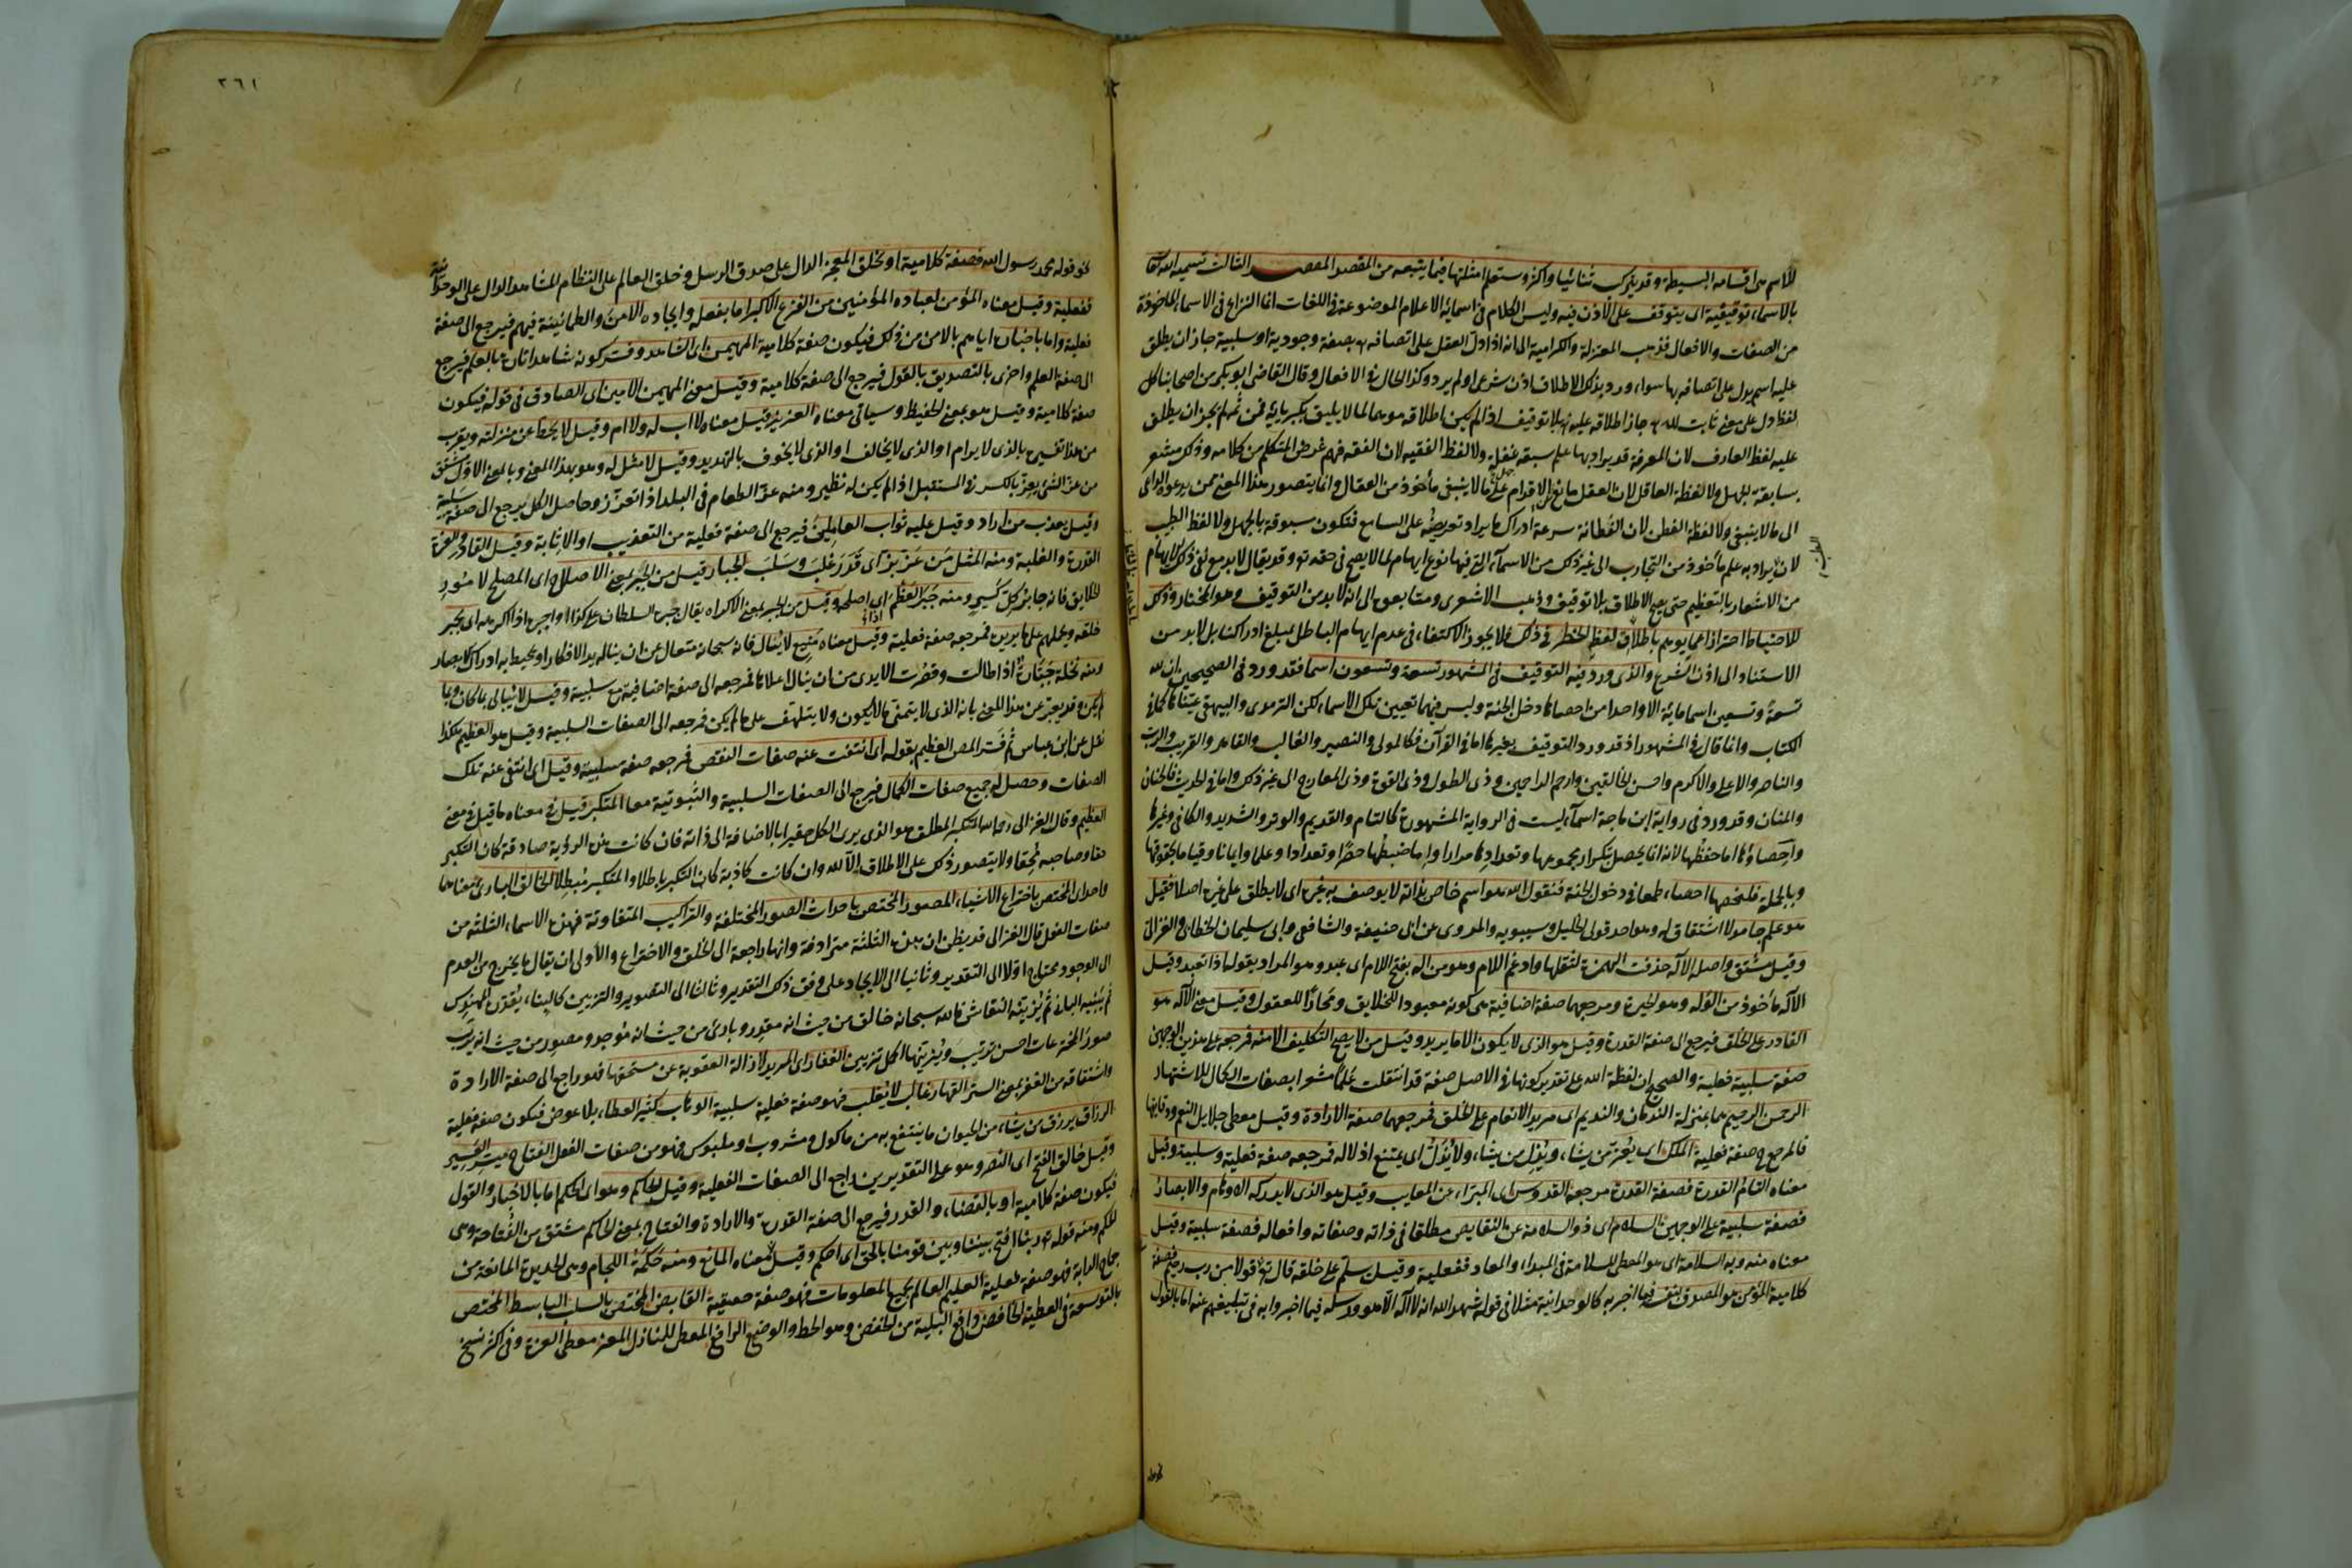 للاسم من اقسامه البسيطة وقد يتركب ثنائيا واكثر وستعلم امثلتها فيما يتبعه من المقصد المقصد الثالث تسميته الله تعالى
بالاسماء توقيفية اى يتوقف على الاذن فيه وليس الكلام فى اسمائه الاعلام الموضوعة فى اللغات انما النزاع فى الاسماء الماخوذة
من الصفات والافعال فذهب المعتزلة والكرامية الى انه اذا دل العقل على اتصافه تع بصفة وجودية او سلبية جاز ان يطلق
عليه اسم يدل على اتصافه بها سواء ورد بذلك الاطلاق اذن شرعى او لم يرد وكذا الحال فى الافعال وقال القاضى ابو بكر من اصحابنا كل
لفظ دل على معنى ثابت لله تع جاز اطلاقه عليه تع بلا توقيف اذا لم يكن اطلاقه موهما لما لا يليق بكبريائه فمن ثم لم يجز ان يطلق
عليه لفظ العارف لان المعرفة قد يراد بها علم سبقه غفلة ولا لفظ الفقيه لان الفقه فهم غرض المتكلم من كلامه وذلك مشعر
بسابقة الجهل ولا لفظة العاقل لان العقل مانع من الاقدام على ما لا ينبغى مأخوذ من العقال وانما يتصور هذا المعنى فيمن يدعوه الداعى
الى ما لا ينبغى ولا لفظة الفطن لان الفطانة سرعة ادراك ما يراد تعريضه على السامع فتكون مسبوقة بالجهل ولا لفظ الطبيب
لان يراد به علم مأخوذ من التجارب الى غير ذلك من الاسماء التى فيها نوع ايهام لما لا يصح فى حقه تع وقد يقال لا بد مع نفى ذلك الايهام
من الاشعار بالتعظيم حتى يصح الاطلاق بلا توقيف وذهب الاشعرى ومتابعوه الى انه لا بد من التوقيف وهو المختار وذلك
للاحتياط احترازا عما يوهم باطلا لعظم الخطر فى ذلك فلا يجوز الاكتفاء فى عدم ايهام الباطل بمبلغ ادراكنا بل لا بد من
الاستناد الى اذن الشرع والذى ورد فيه التوقيف فى المشهور تسعة وتسعون اسما فقد ورد فى الصحيحين ان لله
تسعة وتسعين اسما مائة الا واحدا من احصاها دخل الجنة وليس فيهما تعيين تلك الاسماء لكن الترمذى والبيهقى عيناها كما فى
الكتاب وانما قال فى المشهور اذ قد ورد التوقيف بغيرها اما فى القرآن فكالمولى والنصير والغالب والقاهر والقريب والرب
والناصر والاعلى والاكرم واحسن الخالقين وارحم الراحمين وذى الطول وذى القوة وذى المعارج الى غير ذلك واما فى الحديث فالحنان
والمنان وقد ورد فى رواية ابن ماجة اسماء ليست فى الرواية المشهورة كالتام والقديم والوتر والشديد والكافى وغيرها
واحصاؤها اما حفظها لانه انما يحصل بتكرار مجموعها وتعدادها مرارا واما ضبطها حصرا وتعدادا وعلما وايمانا وقياما بحقوقها
وبالجملة فلنحصها احصاء طمعا فى دخول الجنة فنقول الله هو اسم خاص بذاته لا يوصف به غيره اى لا يطلق على غيره اصلا فقيل
هو علم جامد لا اشتقاق له وهو احد قولى الخليل وسيبويه والمروى عن ابى حنيفة والشافعى وابى سليمان الخطابى والغزالى
وقيل مشتق واصله الاله حذفت الهمزة لثقلها وادغم اللام وهو من اله بفتح اللام اى عبد وهو المراد بقوله اذا تعبد وقيل
الاله مأخوذ من الوله وهو الحيرة ومرجعهما صفة اضافية هى كونه معبودا للخلايق ومحارا للعقول وقيل معنى الاله هو
القادر على الخلق فيرجع الى صفة القدرة وقيل هو الذى لا يكون الا ما يريد وقيل من لا يصح التكليف الا منه فمرجعه على هذين الوجهين
صفة سلبية فعلية والصحيح ان لفظة الله على تقدير كونها فى الاصل صفة قد انتقلت علما مشعرا بصفات الكمال للاشتهار
الرحمن الرحيم هما بمنزلة الندمان والنديم اى مريد الانعام على الخلق فمرجعهما صفة الارادة وقيل معطى جلايل النعم ودقايقها
فالمرجع ح صفة فعلية الملك اى يعز من يشاء ويذل من يشاء ولا يذل اى يمتنع اذلاله فمرجعه صفة فعلية وسلبية وقيل
معناه التام القدرة فصفة القدرة مرجعه القدوس اى المبرا عن المعايب وقيل هو الذى لا يدركه الاوهام والابصار
فصفة سلبية على الوجهين السلام اى ذو السلامة عن النقايص مطلقا فى ذاته وصفاته وافعاله فصفة سلبية وقيل
معناه منه وبه السلامة اى هو المعطى للسلامة فى المبداء والمعاد ففعلية وقيل سلم على خلقه قال تع قولا من رب رحيم فصفة
كلامية المؤمن هو المصدق لنفسه فيما اخبر به كالوحدانية مثلا فى قوله شهد الله انه لا اله الا هو ورسله فيما اخبروا به فى تبليغهم عنه اما بالقول
٢٦١
نحو قوله محمد رسول الله فصفة كلامية او بخلق المعجز الدال على صدق الرسل وخلق العالم على النظام المشاهد الدال على الوحدانية
ففعلية وقيل معناه المؤمن لعباده المؤمنين من الفزع الاكبر اما بفعله وايجاده الامن والطمانينة فيهم فيرجع الى صفة
فعلية واما باخباره اياهم بالامن من ذلك فيكون صفة كلامية المهيمن اى الشاهد وفسر كونه شاهدا تارة بالعلم فيرجع
الى صفة العلم واخرى بالتصديق بالقول فيرجع الى صفة كلامية وقيل معنى المهيمن الامين اى الصادق فى قوله فيكون
صفة كلامية وقيل هو بمعنى الحفيظ وسياتى معناه العزيز قيل معناه لا اب له ولا ام وقيل لا يحط عن منزلته ويقرب
من هذا تفسيره بالذى لا يرام او الذى لا يخالف او الذى لا يخوف بالتهديد وقيل لا مثل له وهو بهذا المعنى وبالمعنى الاول مشتق
من عز الشئ يعز بالكسر فى المستقبل اذا لم يكن له نظير ومنه عز الطعام فى البلد اذا تعزز وحاصل الكل يرجع الى صفة سلبية
وقيل يعذب من اراد وقيل عليه ثواب العاملين فيرجع الى صفة فعلية من التعذيب او الاثابة وقيل القادر والعزة
القدرة والغلبة ومنه المثل من عز بز اى قدر غلب وسلب الجبار قيل من الجبر بمعنى الاصلاح اى المصلح لامور
الخلايق فانه جابر كل كسير ومنه جبر العظم اى اصلحه وقيل من الجبر بمعنى الاكراه يقال جبره السلطان على كذا واجبره اذا اكرهه اى يجبر
خلقه ويحملهم على ما يريده فمرجعه صفة فعلية وقيل معناه منيع لا ينال فانه سبحانه متعال عن ان يناله يد الافكار او يحيط به ادراك الابصار
ومنه نخلة جبارة اذا طالت وقصرت الايدى من ان ينال اعلاها فمرجعه الى صفة اضافية مع سلبية وقيل لا يبالى بما كان وبما
لم يكن وقد يعبر عن هذا المعنى بانه الذى لا يتمنى ما لا يكون ولا يتلهف على ما لم يكن فمرجعه الى الصفات السلبية وقيل هو العظيم هكذا
نقل عن ابن عباس ثم فسر المص العظيم بقوله اى انتفت عنه صفات النقص فمرجعه صفة سلبية وقيل اى انتفى عنه تلك
الصفات وحصل له جميع صفات الكمال فيرجع الى الصفات السلبية والثبوتية معا المتكبر قيل فى معناه ما قيل فى معنى
العظيم وقال الغزالى رحمه الله المتكبر المطلق هو الذى يرى الكل حقيرا بالاضافة الى ذاته فان كانت هذه الرؤية صادقة كان التكبر
حقا وصاحبه محقا ولا يتصور ذلك على الاطلاق الا لله وان كانت كاذبة كان التكبر باطلا والمتكبر مبطلا الخالق البارئ معناهما
واحد اى المختص باختراع الاشياء المصور المختص باحداث الصور المختلفة والتراكيب المتفاوتة فهذه الاسماء الثلثة من
صفات الفعل قال الغزالى قد يظن ان هذه الثلثة مترادفة وانها راجعة الى الخلق والاختراع والأولى ان يقال ما يخرج من العدم
الى الوجود محتاج اولا الى التقدير وثانيا الى الايجاد على وفق ذلك التقدير وثالثا الى التصوير والتزيين كالبناء يقدره المهندس
ثم يبنيه البانى ثم يزينه النقاش فالله سبحانه خالق من حيث انه مقدر وبارئ من حيث انه موجد ومصور من حيث انه يرتب
صور المخترعات احسن ترتيب ويزينها اكمل تزيين الغفار اى المريد لازالة العقوبة عن مستحقها فهو راجع الى صفة الارادة
واشتقاقه من الغفر بمعنى الستر القهار غالب لا يغلب فهو صفة فعلية سلبية الوهاب كثير العطاء بلا عوض فيكون صفة فعلية
الرزاق يرزق من يشاء من الحيوان ما ينتفع به من ماكول ومشروب او ملبوس فهو من صفات الفعل الفتاح ميسر العسير
وقيل خالق الفتح اى النصر وهو على التقديرين راجع الى الصفات الفعلية وقيل الحاكم وهو اى الحكم اما بالاخبار والقول
فيكون صفة كلامية او بالقضاء والقدر فيرجع الى صفة القدرة والارادة والفتاح بمعنى الحاكم مشتق من الفتاحة وهى
الحكم ومنه قوله تع ربنا افتح بيننا وبين قومنا بالحق اى احكم وقيل معناه المانع ومنه حكمة اللجام وهى الحديدة المانعة من
جماح الدابة فهو صفة فعلية العليم العالم بجميع المعلومات فهو صفة حقيقية القابض المختص بالسلب الباسط المختص
بالتوسعة فى العطية الخافض دافع البلية من الخفض وهو الحط والوضيع الرافع المعطى للمنازل المعز معطى العزة وفى اكثر نسخ